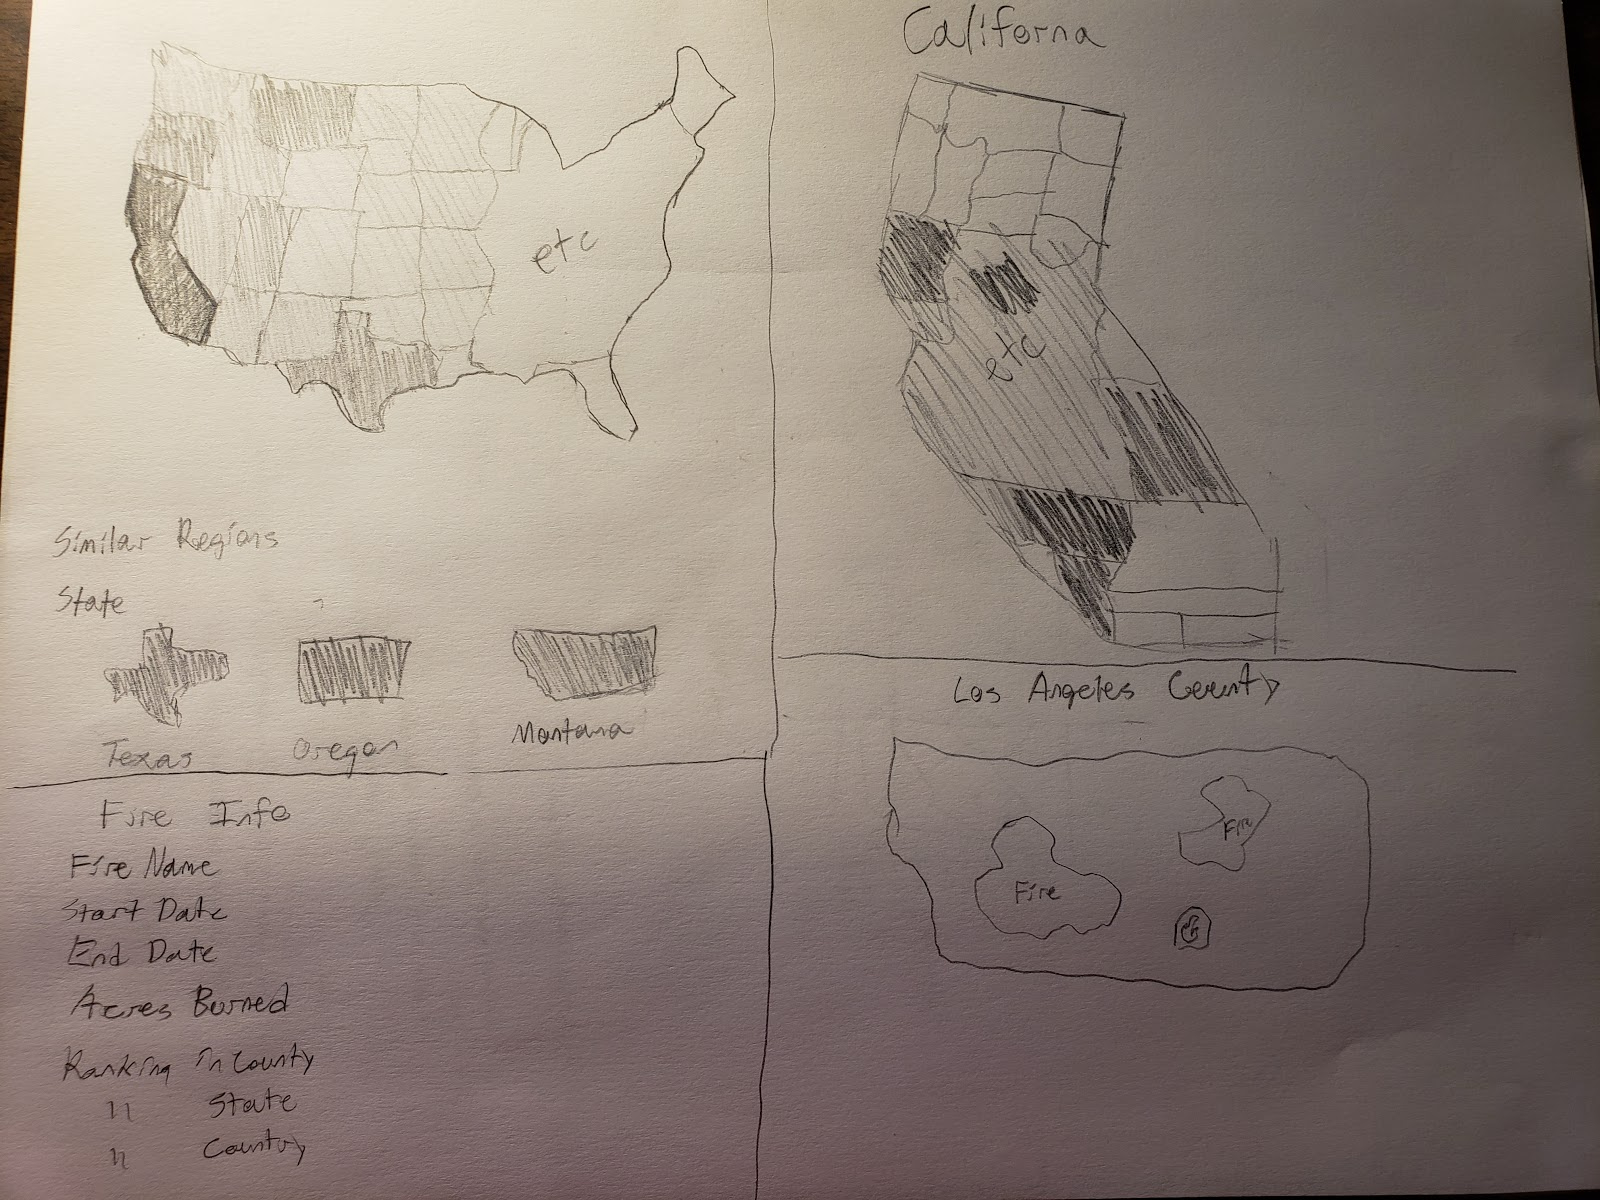 etc
Similar Regions
State
Texas
Oregon
Montana
Fire Info
Fire Name
Start Date
End Date
Acres Burned
Ranking in County
" State
" Country
Californa
etc
Los Angeles County
Fire
Fire